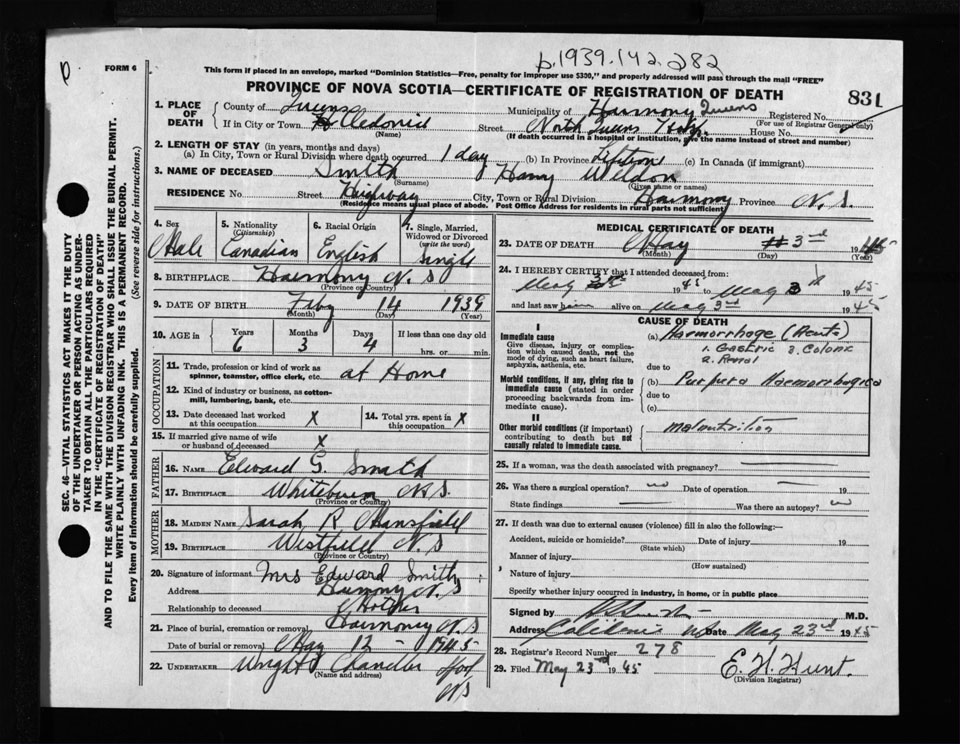 p.1939.142.282
FORM 6
This form if placed in an envelope, marked "Dominion Statistics—Free, penalty for improper use $300," and properly addressed will pass through the mail "FREE"
PROVINCE OF NOVA SCOTIA—CERTIFICATE OF REGISTRATION OF DEATH
831
1. PLACE OF DEATH County of Queens Municipality of Harmony Queens Registered No.
(For use of Registrar General only)
If in City or Town Cledonia Street North Queens Hosp. House No.
(Name) (If death occurred in a hospital or institution, give the name instead of street and number)
2. LENGTH OF STAY (in years, months and days)
(a) In City, Town or Rural Division where death occurred 1 day (b) In Province Lifetime (c) In Canada (if immigrant)
3. NAME OF DECEASED Smith Harry Weldon
(Surname) (Given name or names)
RESIDENCE No. Street Highway City, Town or Rural Division Harmony N.S.
(Residence means usual place of abode. Post Office Address for residents in rural parts not sufficient)
4. Sex Male
5. Nationality (Citizenship) Canadian
6. Racial Origin English
7. Single, Married, Widowed or Divorced (write the word) Single
8. BIRTHPLACE Harmony N S
(Province or Country)
9. DATE OF BIRTH Feby 14 1939
(Month) (Day) (Year)
10. AGE in Years Months Days If less than one day old
6 3 4 hrs. or min.
OCCUPATION
11. Trade, profession or kind of work as spinner, teamster, office clerk, etc. at Home
12. Kind of industry or business, as cotton-mill, lumbering, bank, etc.
13. Date deceased last worked at this occupation X
14. Total yrs. spent in this occupation X
15. If married give name of wife or husband of deceased X
FATHER
16. NAME Edward G. Smith
17. BIRTHPLACE Whiteburn N.S.
(Province or Country)
MOTHER
18. MAIDEN NAME Sarah R Mansfield
19. BIRTHPLACE Westfield N.S
(Province or Country)
20. Signature of informant Mrs Edward Smith
Address Harmony N.S
Relationship to deceased Mother
21. Place of burial, cremation or removal Harmony N.S
Date of burial or removal May 1945
22. UNDERTAKER Wright Chandler
(Name and address)
N S
MEDICAL CERTIFICATE OF DEATH
23. DATE OF DEATH May 3rd 19
(Month) (Day) (Year)
24. I HEREBY CERTIFY that I attended deceased from:
May 1945 to May 3 1945
and last saw him alive on May 3rd 1945
CAUSE OF DEATH
I
Immediate cause
Give disease, injury or complication which caused death, not the mode of dying, such as heart failure, asphyxia, asthenia, etc.
(a) Haemorrhage (Acute)
1. Gastric 3. Colonic
2. Renal
due to
Morbid conditions, if any, giving rise to immediate cause (stated in order proceeding backwards from immediate cause).
(b) Purpura Haemorrhagica
due to
(c)
II
Other morbid conditions (if important) contributing to death but not causally related to immediate cause.
Malnutrition
25. If a woman, was the death associated with pregnancy?
26. Was there a surgical operation? no Date of operation 19
State findings Was there an autopsy? no
27. If death was due to external causes (violence) fill in also the following:—
Accident, suicide or homicide? Date of injury 19
(State which)
Manner of injury
(How sustained)
Nature of injury
Specify whether injury occurred in industry, in home, or in public place
Signed by M.D.
Address Caledonia N.S. Date May 23rd 1945
28. Registrar's Record Number 278
29. Filed May 23rd 1945 E. H. Hunt.
(Division Registrar)
SEC. 46—VITAL STATISTICS ACT MAKES IT THE DUTY
OF THE UNDERTAKER OR PERSON ACTING AS UNDER-
TAKER TO OBTAIN ALL THE PARTICULARS REQUIRED
IN THE "CERTIFICATE OF REGISTRATION OF DEATH"
AND TO FILE THE SAME WITH THE DIVISION REGISTRAR WHO SHALL ISSUE THE BURIAL PERMIT.
WRITE PLAINLY WITH UNFADING INK. THIS IS A PERMANENT RECORD.
Every item of information should be carefully supplied. (See reverse side for instructions.)